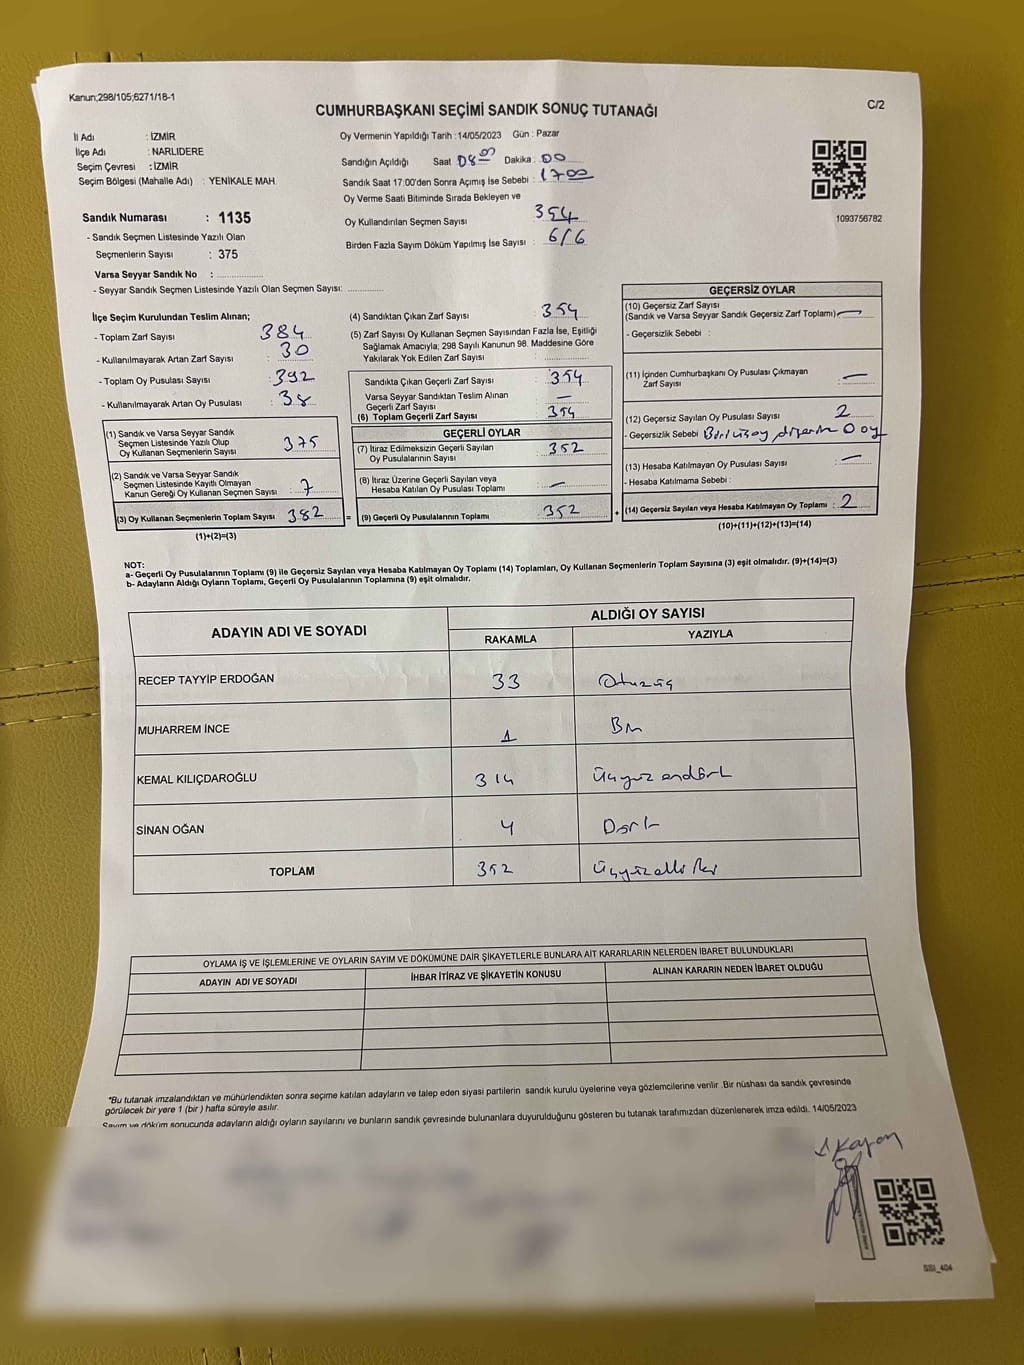 Kanun;298/105;6271/18-1
CUMHURBAŞKANI SEÇİMİ SANDIK SONUÇ TUTANAĞI
C/2
İl Adı : İZMİR
İlçe Adı : NARLIDERE
Seçim Çevresi : İZMİR
Seçim Bölgesi (Mahalle Adı) : YENİKALE MAH.
Oy Vermenin Yapıldığı Tarih :14/05/2023 Gün : Pazar
Sandığın Açıldığı Saat 08:00 Dakika : 00
Sandık Saat 17:00'den Sonra Açımış İse Sebebi : 17:00
Oy Verme Saati Bitiminde Sırada Bekleyen ve
Oy Kullandırılan Seçmen Sayısı 354
Birden Fazla Sayım Döküm Yapılmış İse Sayısı : 6/6
1093756782
Sandık Numarası : 1135
- Sandık Seçmen Listesinde Yazılı Olan
Seçmenlerin Sayısı : 375
Varsa Seyyar Sandık No :
- Seyyar Sandık Seçmen Listesinde Yazılı Olan Seçmen Sayısı:
İlçe Seçim Kurulundan Teslim Alınan;
- Toplam Zarf Sayısı : 384
- Kullanılmayarak Artan Zarf Sayısı : 30
- Toplam Oy Pusulası Sayısı : 392
- Kullanılmayarak Artan Oy Pusulası : 38
(1) Sandık ve Varsa Seyyar Sandık
Seçmen Listesinde Yazılı Olup
Oy Kullanan Seçmenlerin Sayısı : 375
(2) Sandık ve Varsa Seyyar Sandık
Seçmen Listesinde Kayıtlı Olmayan
Kanun Gereği Oy Kullanan Seçmen Sayısı : 7
(3) Oy Kullanan Seçmenlerin Toplam Sayısı : 382
(1)+(2)=(3)
(4) Sandıktan Çıkan Zarf Sayısı : 354
(5) Zarf Sayısı Oy Kullanan Seçmen Sayısından Fazla İse, Eşitliği
Sağlamak Amacıyla; 298 Sayılı Kanunun 98. Maddesine Göre
Yakılarak Yok Edilen Zarf Sayısı :
Sandıkta Çıkan Geçerli Zarf Sayısı : 354
Varsa Seyyar Sandıktan Teslim Alınan
Geçerli Zarf Sayısı : —
(6) Toplam Geçerli Zarf Sayısı : 354
GEÇERLİ OYLAR
(7) İtiraz Edilmeksizin Geçerli Sayılan
Oy Pusulalarının Sayısı : 352
(8) İtiraz Üzerine Geçerli Sayılan veya
Hesaba Katılan Oy Pusulası Toplamı : —
= (9) Geçerli Oy Pusulalarının Toplamı : 352
GEÇERSİZ OYLAR
(10) Geçersiz Zarf Sayısı
(Sandık ve Varsa Seyyar Sandık Geçersiz Zarf Toplamı) —
- Geçersizlik Sebebi :
(11) İçinden Cumhurbaşkanı Oy Pusulası Çıkmayan
Zarf Sayısı : —
(12) Geçersiz Sayılan Oy Pusulası Sayısı : 2
- Geçersizlik Sebebi 0 oy
(13) Hesaba Katılmayan Oy Pusulası Sayısı : —
- Hesaba Katılmama Sebebi :
+ (14) Geçersiz Sayılan veya Hesaba Katılmayan Oy Toplamı : 2
(10)+(11)+(12)+(13)=(14)
NOT:
a- Geçerli Oy Pusulalarının Toplamı (9) ile Geçersiz Sayılan veya Hesaba Katılmayan Oy Toplamı (14) Toplamları, Oy Kullanan Seçmenlerin Toplam Sayısına (3) eşit olmalıdır. (9)+(14)=(3)
b- Adayların Aldığı Oyların Toplamı, Geçerli Oy Pusulalarının Toplamına (9) eşit olmalıdır.
ADAYIN ADI VE SOYADI
ALDIĞI OY SAYISI
RAKAMLA YAZIYLA
RECEP TAYYİP ERDOĞAN 33 Otuzüç
MUHARREM İNCE 1 Bir
KEMAL KILIÇDAROĞLU 314 Üçyüz ondört
SİNAN OĞAN 4 Dört
TOPLAM 352 Üçyüzelli iki
OYLAMA İŞ VE İŞLEMLERİNE VE OYLARIN SAYIM VE DÖKÜMÜNE DAİR ŞİKAYETLERLE BUNLARA AİT KARARLARIN NELERDEN İBARET BULUNDUKLARI
ADAYIN ADI VE SOYADI İHBAR İTİRAZ VE ŞİKAYETİN KONUSU ALINAN KARARIN NEDEN İBARET OLDUĞU
*Bu tutanak imzalandıktan ve mühürlendikten sonra seçime katılan adayların ve talep eden siyasi partilerin sandık kurulu üyelerine veya gözlemcilerine verilir .Bir nüshası da sandık çevresinde
görülecek bir yere 1 (bir ) hafta süreyle asılır.
Sayım ve döküm sonucunda adayların aldığı oyların sayılarını ve bunların sandık çevresinde bulunanlara duyurulduğunu gösteren bu tutanak tarafımızdan düzenlenerek imza edildi. 14/05/2023
SSI_404